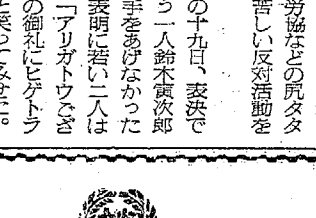 労協などの尻タタ
苦しい反対活動を
の十九日、表決で
う一人鈴木寅次郎
手をあげなかった
表明に若い二人は
「アリガトウござ
の御礼にヒゲトラ
と笑ってみせた。